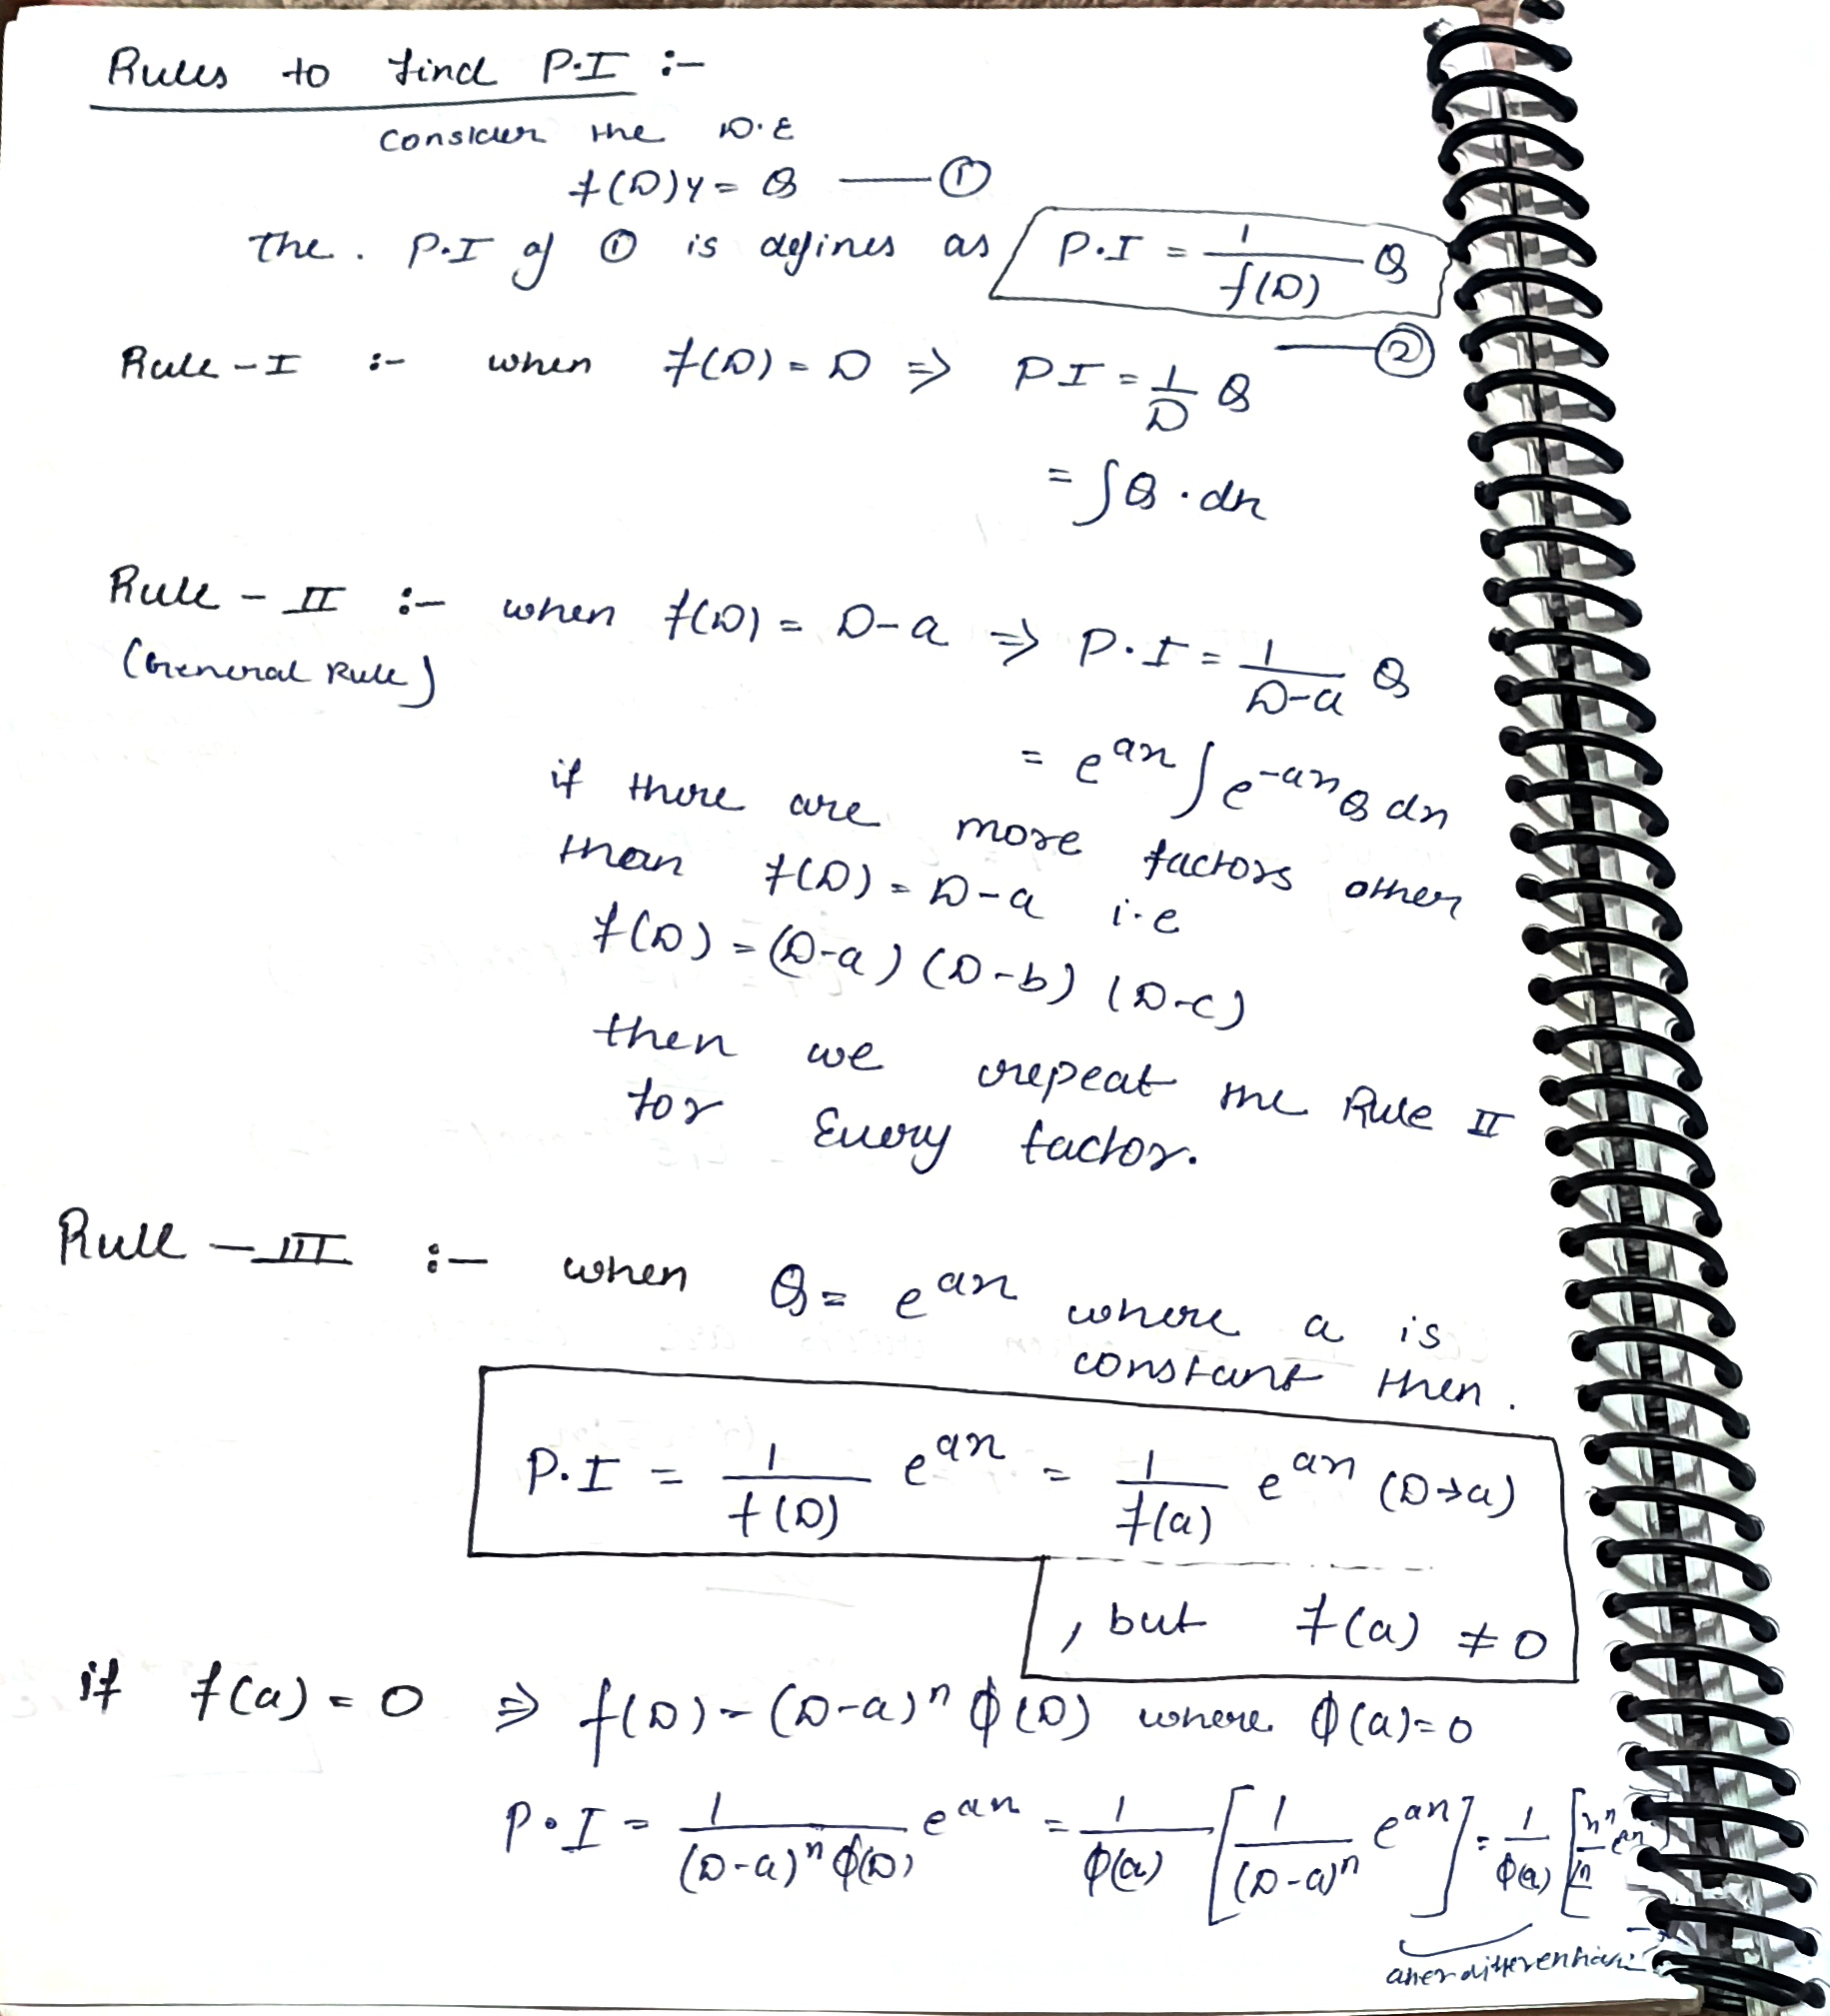 Rules to find P.I :-
Consider the D.E
f(D)y = Q —— ①
The. P.I of ① is defines as P.I = 1/f(D) Q —— ②
Rule - I :- when f(D) = D ⇒ PI = 1/D Q
= ∫Q . dx
Rule - II :- when f(D) = D-a ⇒ P.I = 1/(D-a) Q
(General Rule)
= e^ax ∫e^-ax Q dx
if there are more factors other
than f(D) = D-a i.e
f(D) = (D-a) (D-b) (D-c)
then we repeat the Rule II
for Every factor.
Rule - III :- when Q = e^ax where a is
constant then.
P.I = 1/f(D) e^ax = 1/f(a) e^ax (D→a)
, but f(a) ≠ 0
if f(a) = 0 ⇒ f(D) = (D-a)^n ϕ(D) where ϕ(a) = 0
P.I = 1/((D-a)^n ϕ(D)) e^ax = 1/ϕ(a) [1/(D-a)^n e^ax] = 1/ϕ(a) [x^n/|n e^ax]